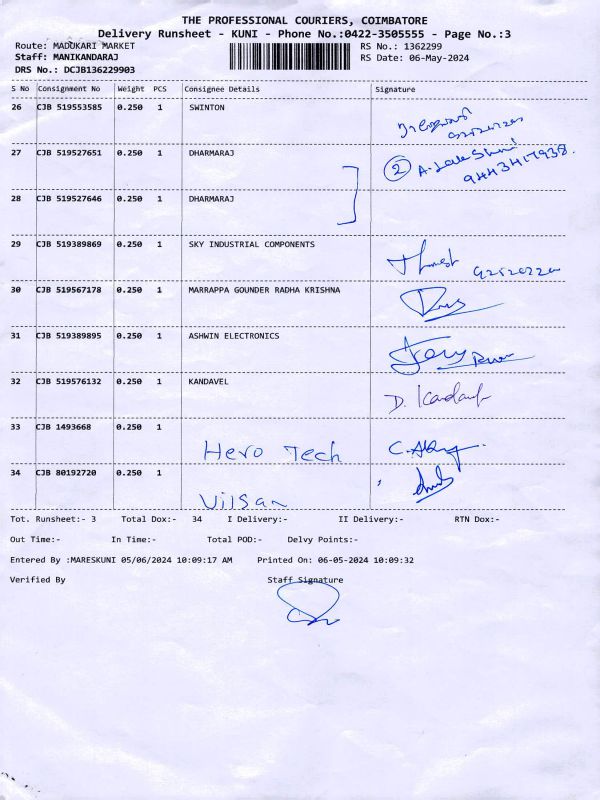 THE PROFESSIONAL COURIERS, COIMBATORE
Delivery Runsheet - KUNI - Phone No.:0422-3505555 - Page No.:3
Route: MADUKARI MARKET RS No.: 1362299
Staff: MANIKANDARAJ RS Date: 06-May-2024
DRS No.: DCJB136229903
S No Consignment No Weight PCS Consignee Details Signature
26 CJB 519553585 0.250 1 SWINTON
27 CJB 519527651 0.250 1 DHARMARAJ 2
9443417938.
28 CJB 519527646 0.250 1 DHARMARAJ
29 CJB 519389869 0.250 1 SKY INDUSTRIAL COMPONENTS
30 CJB 519567178 0.250 1 MARRAPPA GOUNDER RADHA KRISHNA
31 CJB 519389895 0.250 1 ASHWIN ELECTRONICS
32 CJB 519576132 0.250 1 KANDAVEL
33 CJB 1493668 0.250 1
Hero Tech
34 CJB 80192720 0.250 1
Vilsan
Tot. Runsheet:- 3 Total Dox:- 34 I Delivery:- II Delivery:- RTN Dox:-
Out Time:- In Time:- Total POD:- Delvy Points:-
Entered By :MARESKUNI 05/06/2024 10:09:17 AM Printed On: 06-05-2024 10:09:32
Verified By Staff Signature